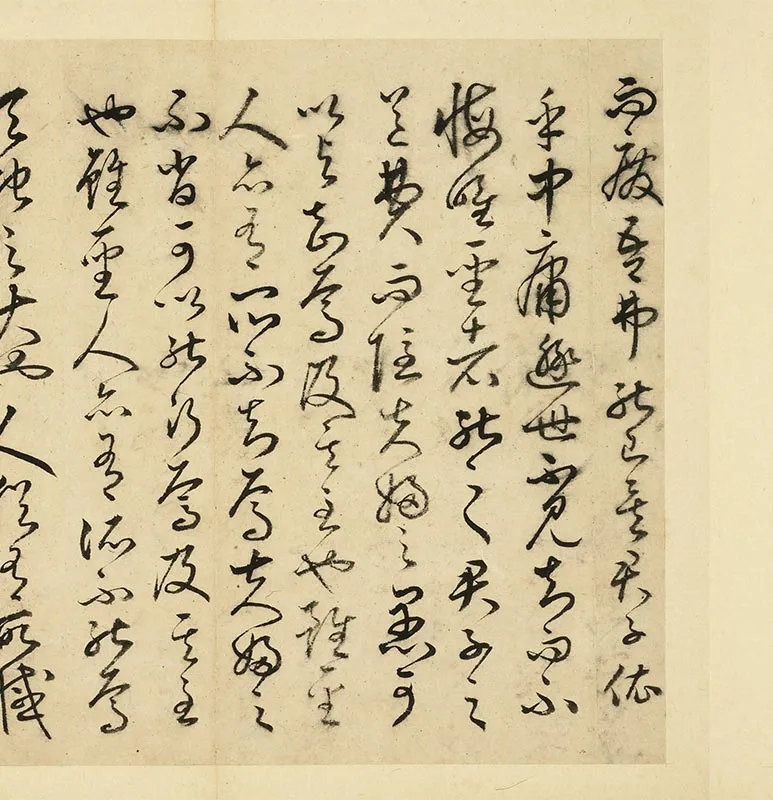 而廢吾弗能已矣君子依
乎中庸遯世不見知而不
悔唯聖者能之君子之
道費而隱夫婦之愚可
以與知焉及其至也雖聖
人亦有所不知焉夫婦之
不肖可以能行焉及其至
也雖聖人亦有所不能焉
天地之大也人猶有所憾